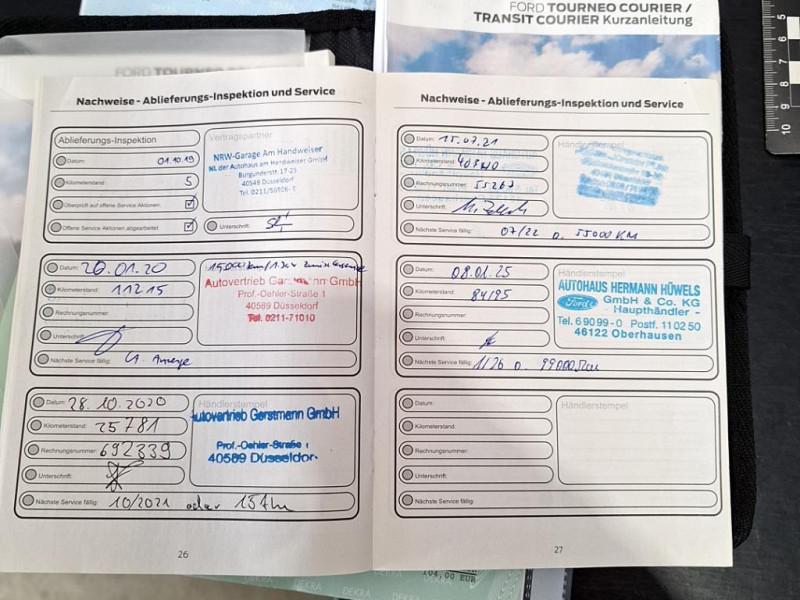 FORD TOURNEO COURIER /
TRANSIT COURIER Kurzanleitung
FORD TOURNEO
Nachweise - Ablieferungs-Inspektion und Service
Ablieferungs-Inspektion
Datum: 01.10.19
Kilometerstand: 5
Überprüft auf offene Service Aktionen:
Offene Service Aktionen abgearbeitet:
Vertragspartner
NRW-Garage Am Handweiser
NL der Autohaus am Handweiser GmbH
Burgunderstr. 17-23
40549 Düsseldorf
Unterschrift:
Datum: 20.01.20
Kilometerstand: 11215
Rechnungsnummer:
Unterschrift:
Nächste Service fällig: lt. Anzeige
Autovertrieb Gerstmann GmbH
Prof.-Oehler-Straße 1
40589 Düsseldorf
Tel. 0211-71010
Datum: 28.10.2020
Kilometerstand: 25781
Rechnungsnummer: 692339
Unterschrift:
Nächste Service fällig: 10/2021 oder 15 Tkm
Händlerstempel
Autovertrieb Gerstmann GmbH
Prof.-Oehler-Straße 1
40589 Düsseldor
26
Nachweise - Ablieferungs-Inspektion und Service
Datum: 15.07.21
Kilometerstand:
Rechnungsnummer: 55267
Unterschrift:
Nächste Service fällig: 07/22 o. 55000 KM
Händlerstempel
Datum: 08.01.25
Kilometerstand: 84195
Rechnungsnummer:
Unterschrift:
Nächste Service fällig: 1/26 o. 99000 km
Händlerstempel
AUTOHAUS HERMANN HÜWELS
Ford GmbH & Co. KG
Haupthändler -
Tel. 6 90 99-0 Postf. 11 02 50
46122 Oberhausen
Datum:
Kilometerstand:
Rechnungsnummer:
Unterschrift:
Nächste Service fällig:
Händlerstempel
27
DEKRA
104,00 EUR
5
10